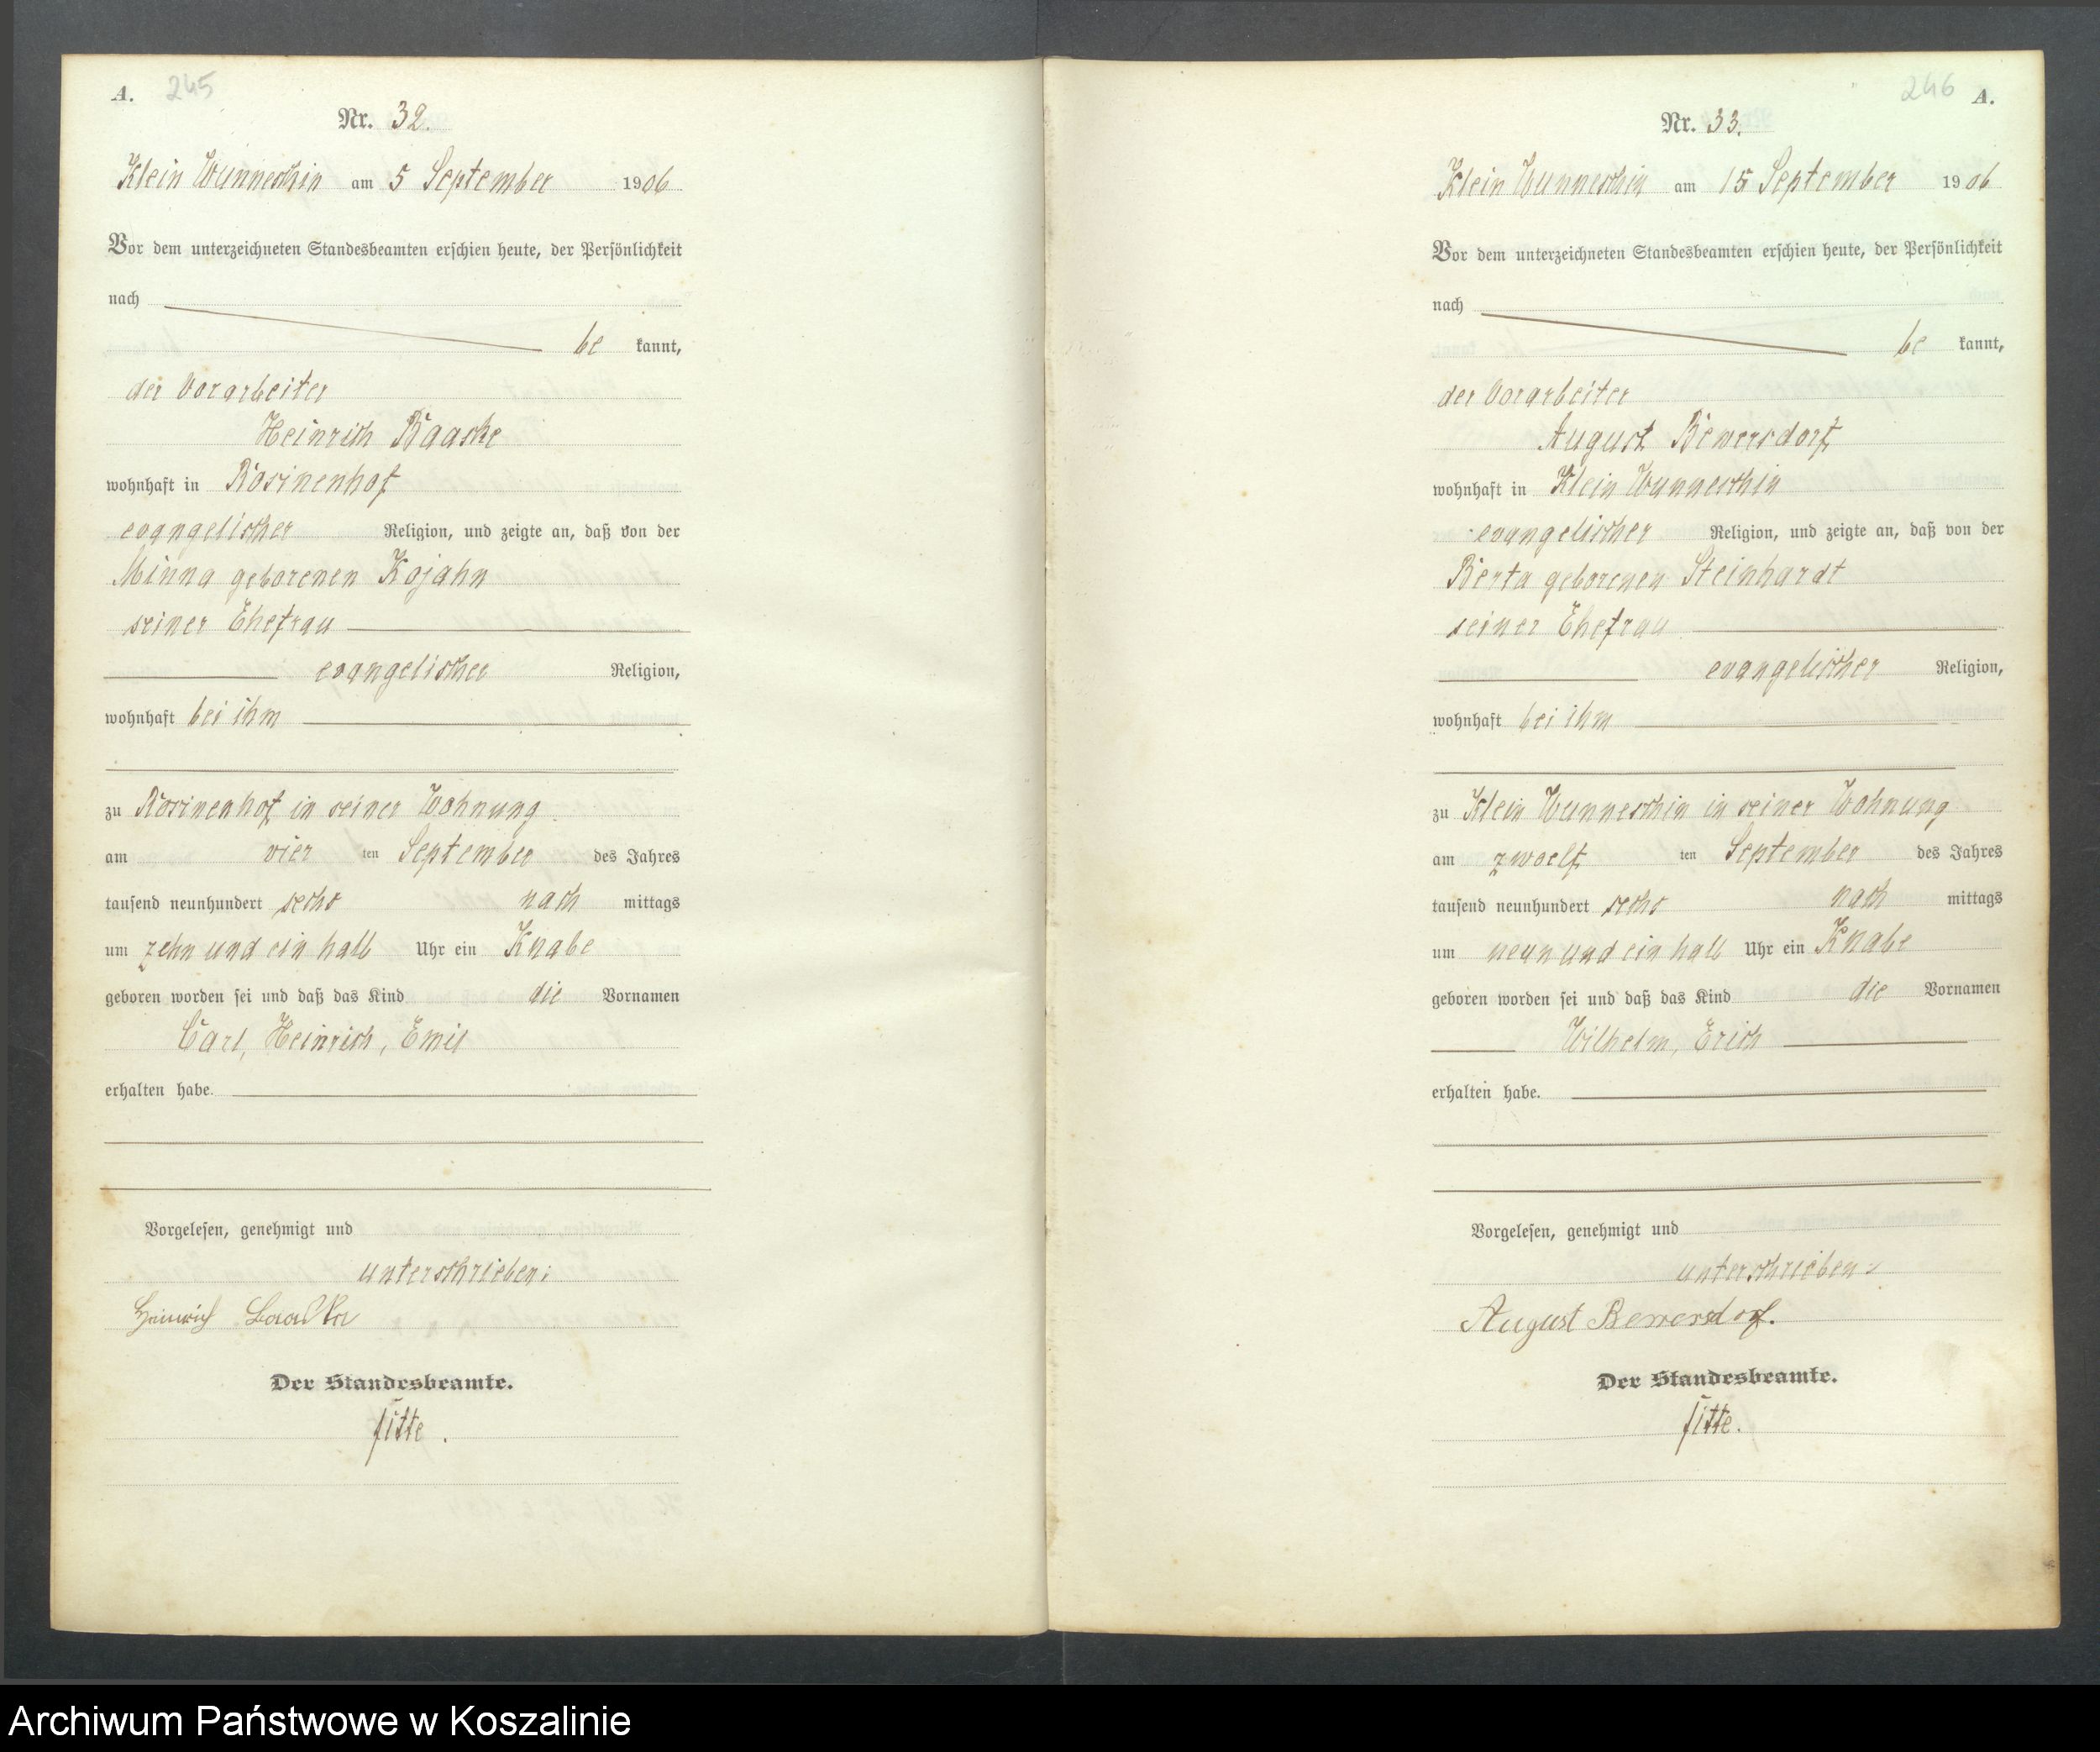 A. 245
Nr. 32.
Klein Wunneschin am 5 September 1906
Vor dem unterzeichneten Standesbeamten erschien heute, der Persönlichkeit
nach
be kannt,
der Vorarbeiter
Heinrich Baaske
wohnhaft in Rosinenhof
evangelischer Religion, und zeigte an, daß von der
Minna geborenen Kojahn
seiner Ehefrau
evangelischer Religion,
wohnhaft bei ihm
zu Rosinenhof in seiner Wohnung
am vier ten September des Jahres
tausend neunhundert sechs nach mittags
um zehn und ein halb Uhr ein Knabe
geboren worden sei und daß das Kind die Vornamen
Carl, Heinrich, Emil
erhalten habe.
Vorgelesen, genehmigt und
unterschrieben:
Heinrich Baaske
Der Standesbeamte.
246 A.
Nr. 33.
Klein Wunneschin am 15 September 1906
Vor dem unterzeichneten Standesbeamten erschien heute, der Persönlichkeit
nach
be kannt,
der Vorarbeiter
August Bewersdorf
wohnhaft in Klein Wunneschin
evangelischer Religion, und zeigte an, daß von der
Berta geborenen Steinhardt
seiner Ehefrau
evangelischer Religion,
wohnhaft bei ihm
zu Klein Wunneschin in seiner Wohnung
am zwoelf ten September des Jahres
tausend neunhundert sechs nach mittags
um neun und ein halb Uhr ein Knabe
geboren worden sei und daß das Kind die Vornamen
Wilhelm, Erich
erhalten habe.
Vorgelesen, genehmigt und
unterschrieben:
August Bewersdorf.
Der Standesbeamte.
Archiwum Państwowe w Koszalinie